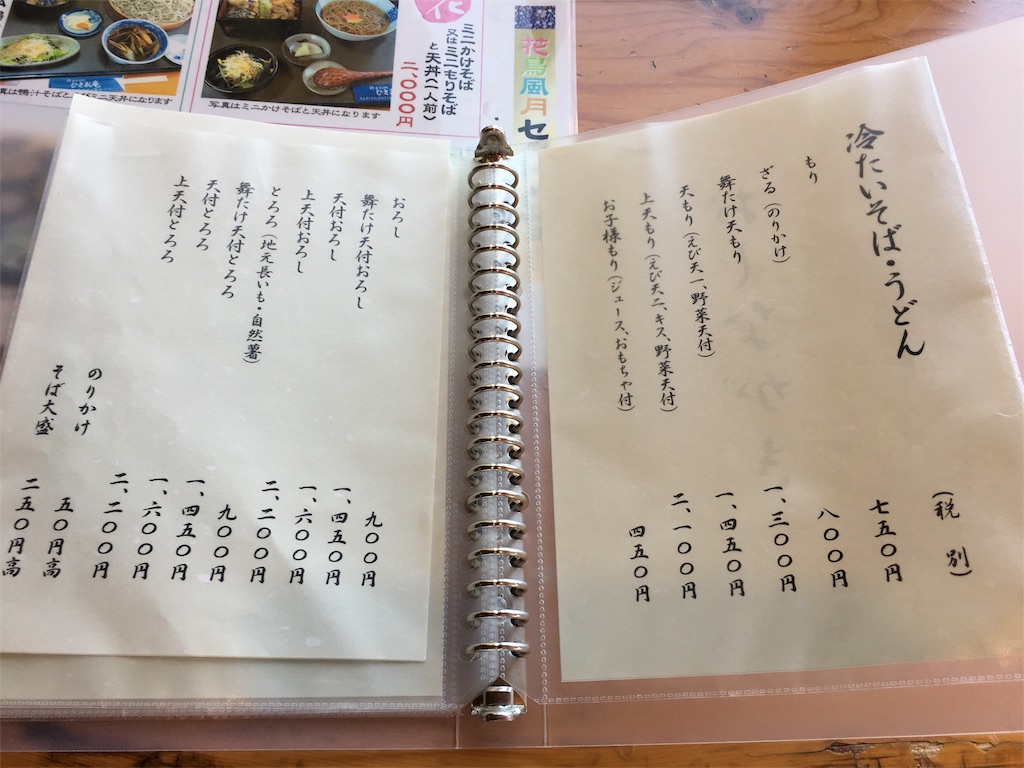 冷たいそば・うどん
(税別)
もり 七五〇円
ざる(のりかけ) 八〇〇円
舞たけ天もり 一、三〇〇円
天もり(えび天一、野菜天付) 一、四五〇円
上天もり(えび天二、キス、野菜天付) 二、一〇〇円
お子様もり(ジュース、おもちゃ付) 四五〇円
おろし 九〇〇円
舞たけ天付おろし 一、四五〇円
天付おろし 一、六〇〇円
上天付おろし 二、二〇〇円
とろろ(地元長いも・自然薯) 九〇〇円
舞たけ天付とろろ 一、四五〇円
天付とろろ 一、六〇〇円
上天付とろろ 二、二〇〇円
のりかけ 五〇円高
そば大盛 二五〇円高
花鳥風月セ
花
ミニかけそば
又はミニもりそば
と天丼(一人前)
二、〇〇〇円
写真はミニかけそばと天丼になります
真は鴨汁そばとミニ天丼になります